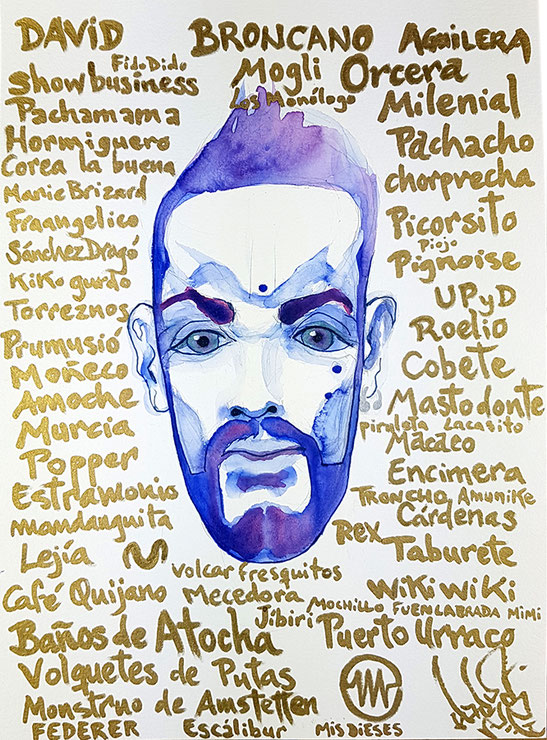 DAVID BRONCANO AGUILERA
FidoDido
Showbusiness Mogli Orcera
Los Monólogo
Pachamama Milenial
Hormiguero Pachacho
Corea la buena chorprecha
Marie Brizard
Fraangelico Picorsito
Piojo
SánchezDragó Pignoise
Kiko gurdo UPyD
Torreznos Roelio
Prumusió Cobete
Moñeco
Amoche Mastodonte
Piruleta Lacasito
Murcia Macaco
Popper Encimera
Estramonio TRONCHO, Amunike
Cárdenas
mandanguita Rex
Lejía Taburete
Volcar fresquitos
Café Quijano Mecedora WiKi WiKi
MOCHILLO FUENLABRADA MiMi
Jíbiri
Baños de Atocha Puerto Urraco
Volquetes de Putas
Monstruo de Amstetten
FEDERER Escálibur MIS DIESES